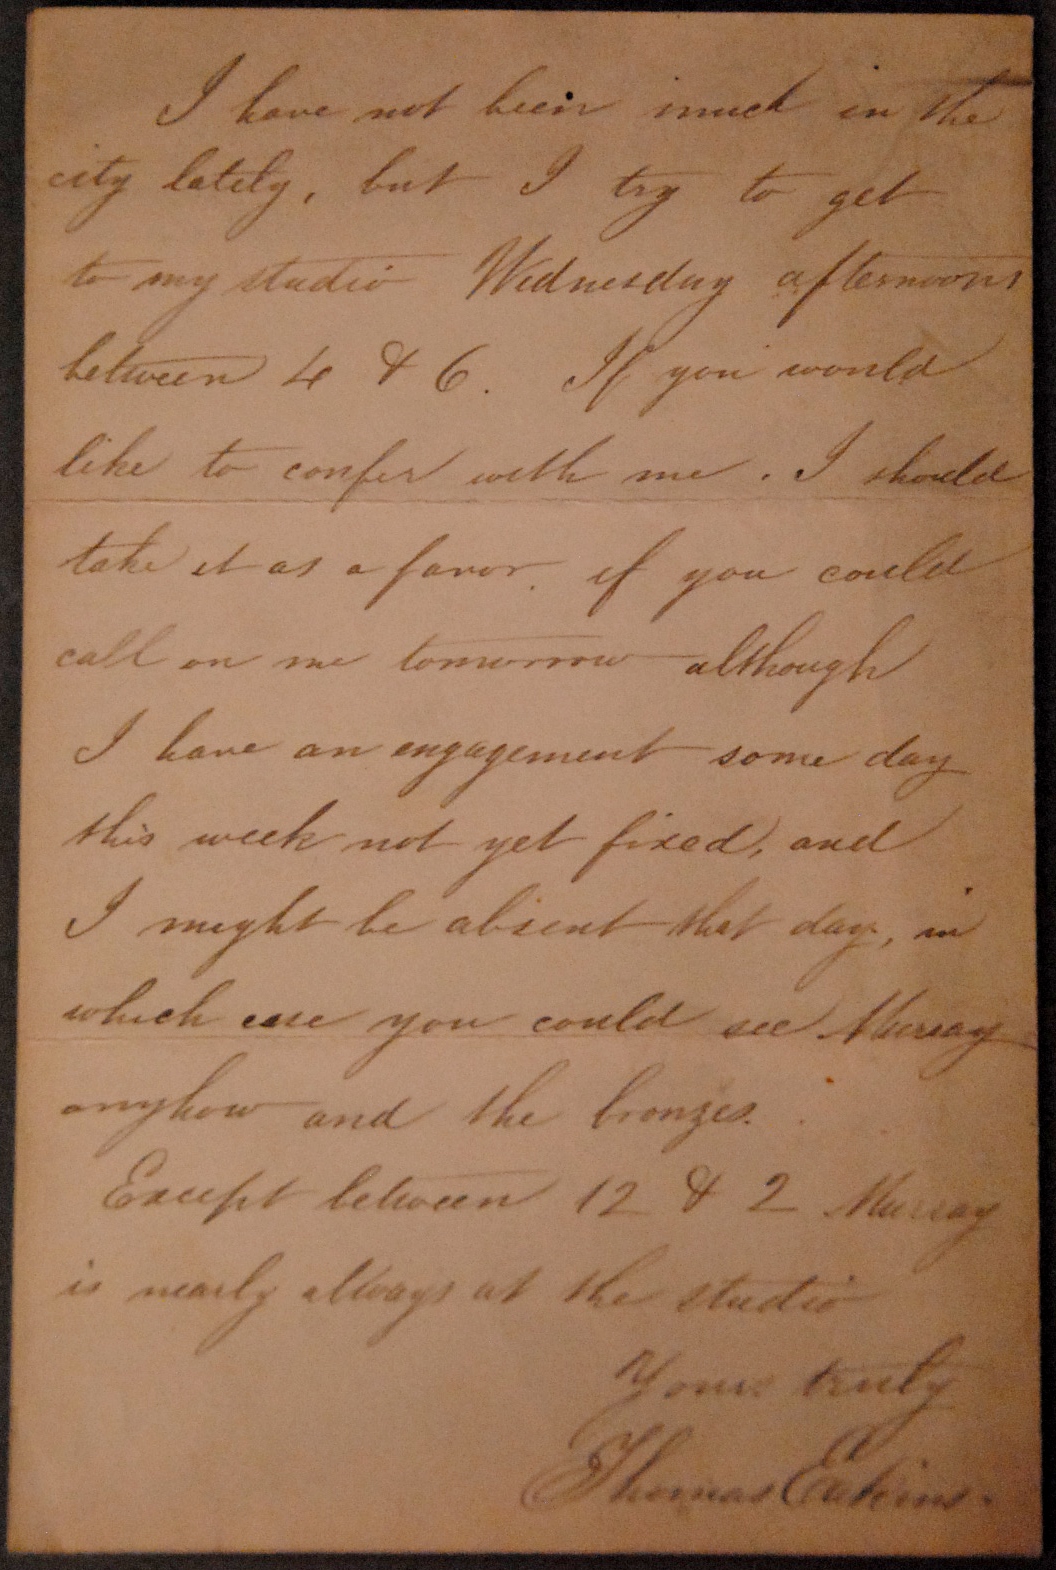 I have not been much in the
city lately, but I try to get
to my studio Wednesday afternoons
between 4 & 6. If you would
like to confer with me. I should
take it as a favor if you could
call on me tomorrow although
I have an engagement some day
this week not yet fixed, and
I might be absent that day, in
which case you could see Murray
anyhow and the bronzes.
Except between 12 & 2 Murray
is nearly always at the studio
Yours truly
Thomas Eakins.